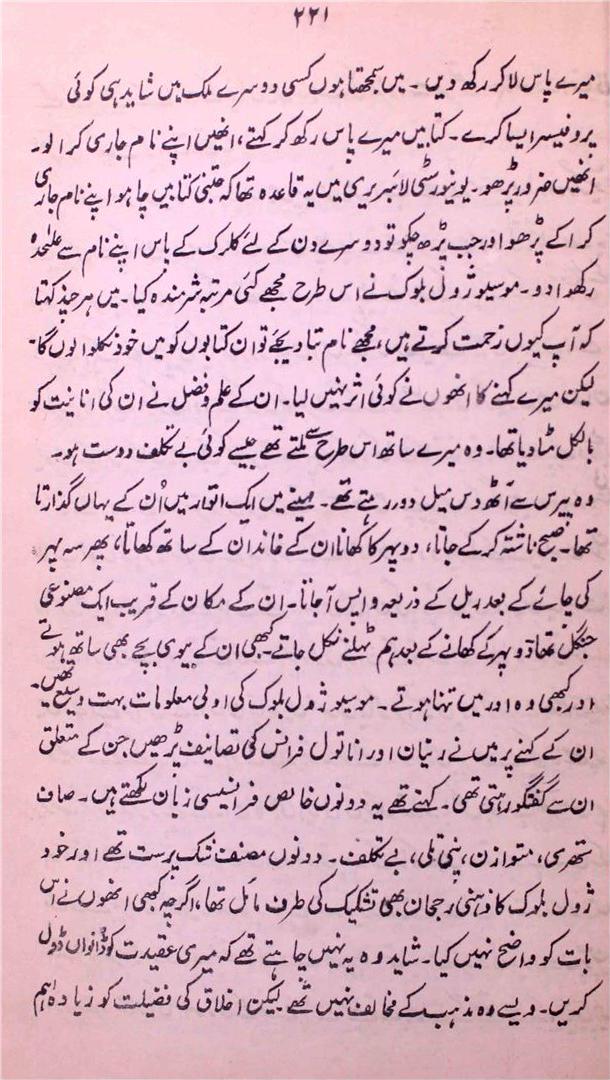 ۲۲۱
میرے پاس لاکر رکھ دیں ۔ میں سمجھتا ہوں کسی دوسرے ملک میں شاید ہی کوئی
پروفیسر ایسا کرے ۔ کتابیں میرے پاس رکھ کر کہتے، انھیں اپنے نام جاری کرا لو۔
انھیں ضرور پڑھو ۔ یونیورسٹی لائبریری میں یہ قاعدہ تھا کہ جتنی کتابیں چاہو اپنے نام جاری
کرا کے پڑھو اور جب پڑھ چکو تو دوسرے دن کے لئے کلرک کے پاس اپنے نام سے علٰحدہ
رکھوا دو ۔ موسیو ژول بلوک نے اس طرح مجھے کئی مرتبہ شرمندہ کیا ۔ میں ہر چند کہتا
کہ آپ کیوں زحمت کرتے ہیں، مجھے نام بتا دیجئے تو ان کتابوں کو میں خود نکلوا لوں گا۔
لیکن میرے کہنے کا انھوں نے کوئی اثر نہیں لیا ۔ ان کے علم و فضل نے ان کی انانیت کو
بالکل مٹا دیا تھا ۔ وہ میرے ساتھ اس طرح سے ملتے تھے جیسے کوئی بے تکلف دوست ہو ۔
وہ پیرس سے آٹھ دس میل دور رہتے تھے ۔ مہینے میں ایک اتوار میں اُن کے یہاں گذارتا
تھا ۔ صبح ناشتہ کر کے جاتا، دوپہر کا کھانا ان کے خاندان کے ساتھ کھاتا، پھر سہ پہر
کی چائے کے بعد ریل کے ذریعہ واپس آجاتا ۔ ان کے مکان کے قریب ایک مصنوعی
جنگل تھا۔ دوپہر کے کھانے کے بعد ہم ٹہلنے نکل جاتے ۔ کبھی ان کے بیوی بچے بھی ساتھ ہوتے
اور کبھی وہ اور میں تنہا ہوتے ۔ موسیو ژول بلوک کی ادبی معلومات بہت وسیع تھیں۔
ان کے کہنے پر میں نے رنیان اور اناتول فرانس کی تصانیف پڑھیں جن کے متعلق
ان سے گفتگو رہتی تھی ۔ کہتے تھے یہ دونوں خالص فرانسیسی زبان لکھتے ہیں ۔ صاف
ستھری، متوازن، نپی تلی، بے تکلف ۔ دونوں مصنف شک پرست تھے اور خود
ژول بلوک کا ذہنی رجحان بھی تشکیک کی طرف مائل تھا، اگرچہ کبھی انھوں نے اس
بات کو واضح نہیں کیا ۔ شاید وہ یہ نہیں چاہتے تھے کہ میری عقیدت کو ڈانواں ڈول
کریں ۔ ویسے وہ مذہب کے مخالف نہیں تھے لیکن اخلاق کی فضیلت کو زیادہ اہم